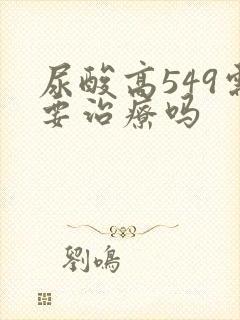 尿酸高549需
要治疗吗
劉鳴